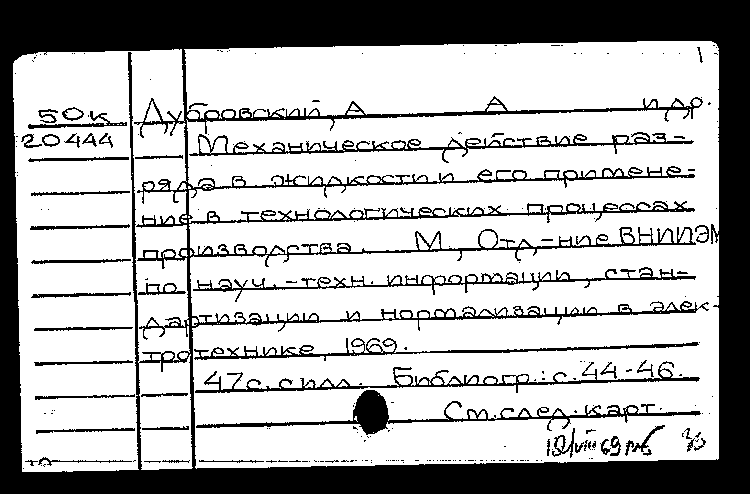 50к Дубровский, А А и др.
20444 Механическое действие раз-
ряда в жидкости и его примене-
ние в технологических процессах
производства. М., Отд-ние ВНИИЭМ
по науч.-техн. информации, стан-
дартизации и нормализации в элек-
тротехнике, 1969.
47с. с илл. Библиогр.: с. 44-46.
См. след. карт.